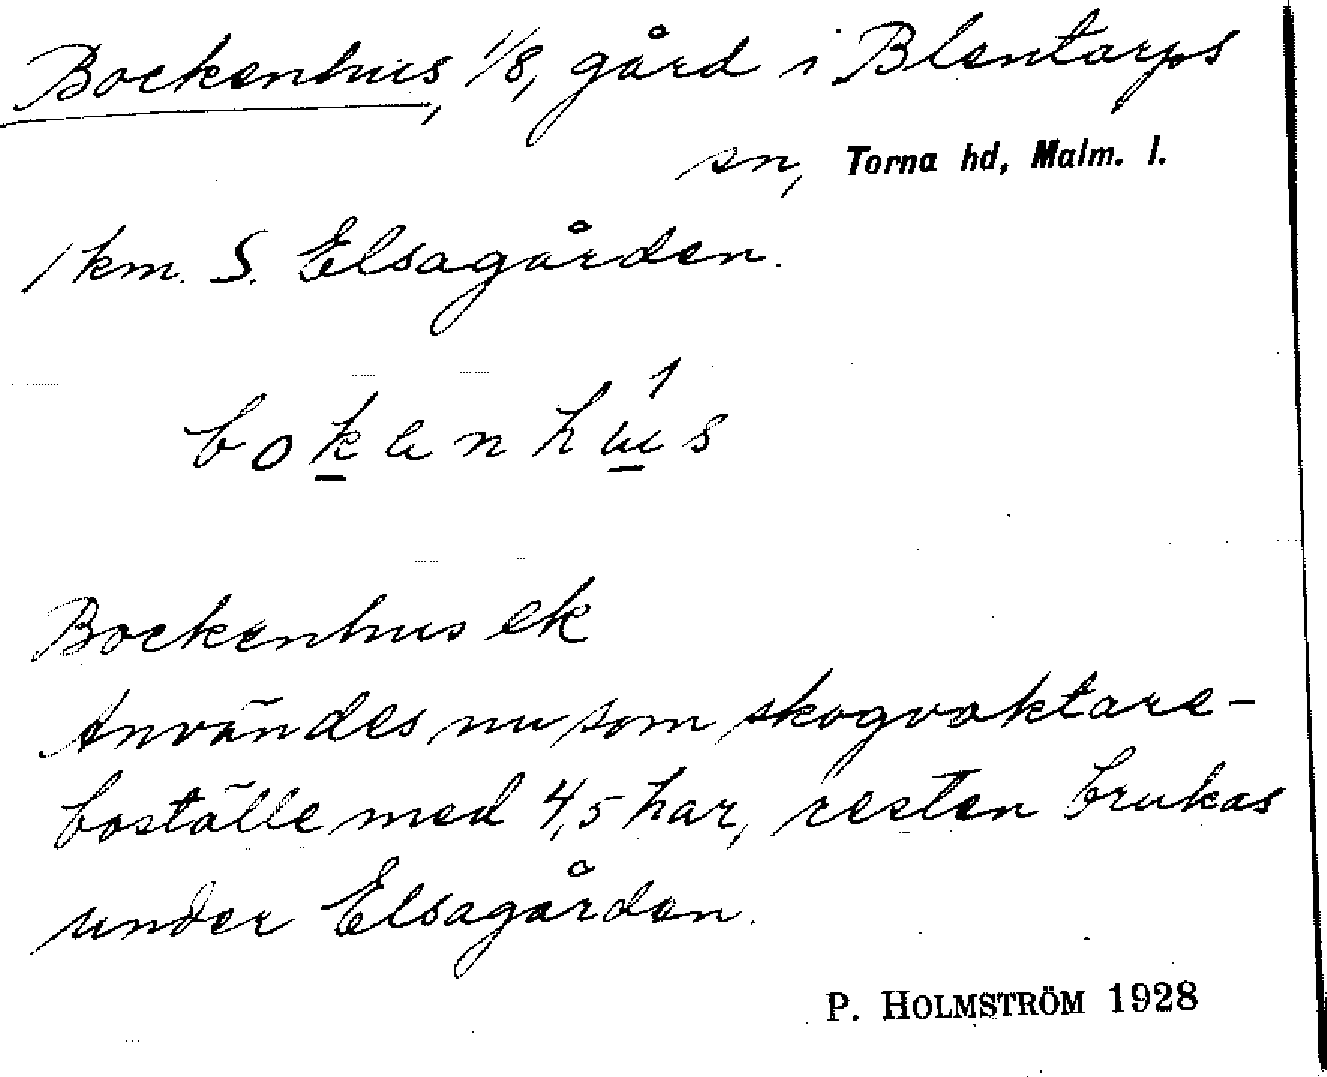 Bockenhus, 1/8, gård i Blentarps
sn, Torna hd, Malm. l.
1 km. S. Elsagården.
bokanhus
Bockenhus ek
Användes nu som skogvaktare-
boställe med 4,5 har, resten brukas
under Elsagården.
P. HOLMSTRÖM 1928